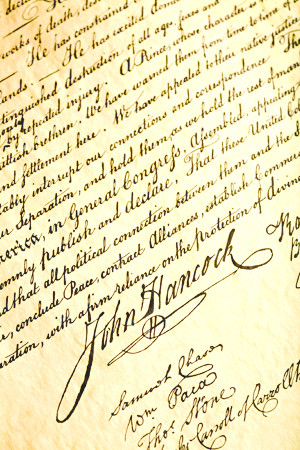 works of death, deso
He has constrained
ands. — He has excited domes
inguished destruction of all ages, sexes and
by repeated injury. A Prince, whose character is
British brethren. We have warned them from time to time of
and settlement here. We have appealed to their native justice
tably interrupt our connections and correspondence. Th
our Separation, and hold them, as we hold the rest of man
merica, in General Congress, Assembled, appealing
lemnly publish and declare, That these United Col
nd that all political connection between them and the S
r, conclude Peace, contract Alliances, establish Commer
aration, with a firm reliance on the Protection of divin
John Hancock
Ro
B
Samuel Chase
Wm Paca
Thos Stone
Carroll of Carrollt